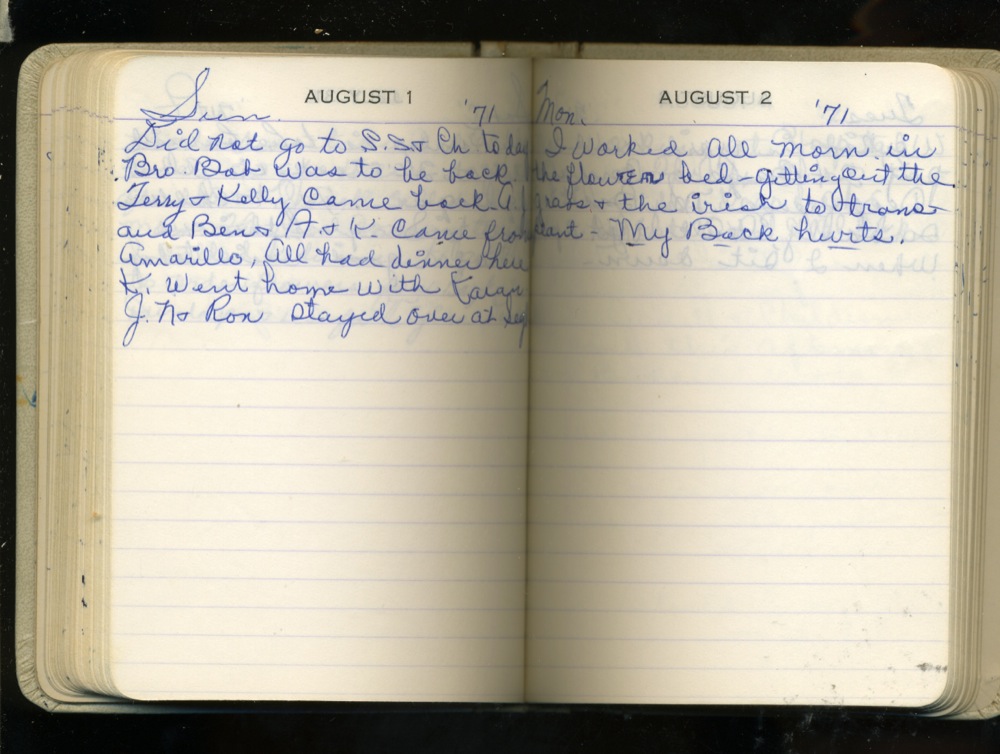 AUGUST 1
Sun. '71
Did not go to S.S & Ch. today
Bro. Bob was to be back.
Terry & Kelly Came back.
and Ben & A & K. Came from
Amarillo, All had dinner here
K. went home with
J. N & Ron stayed over at
AUGUST 2
Mon. '71
I worked all morn. in
the flower bed - getting out the
grass & the iris to trans-
plant - My Back hurts.